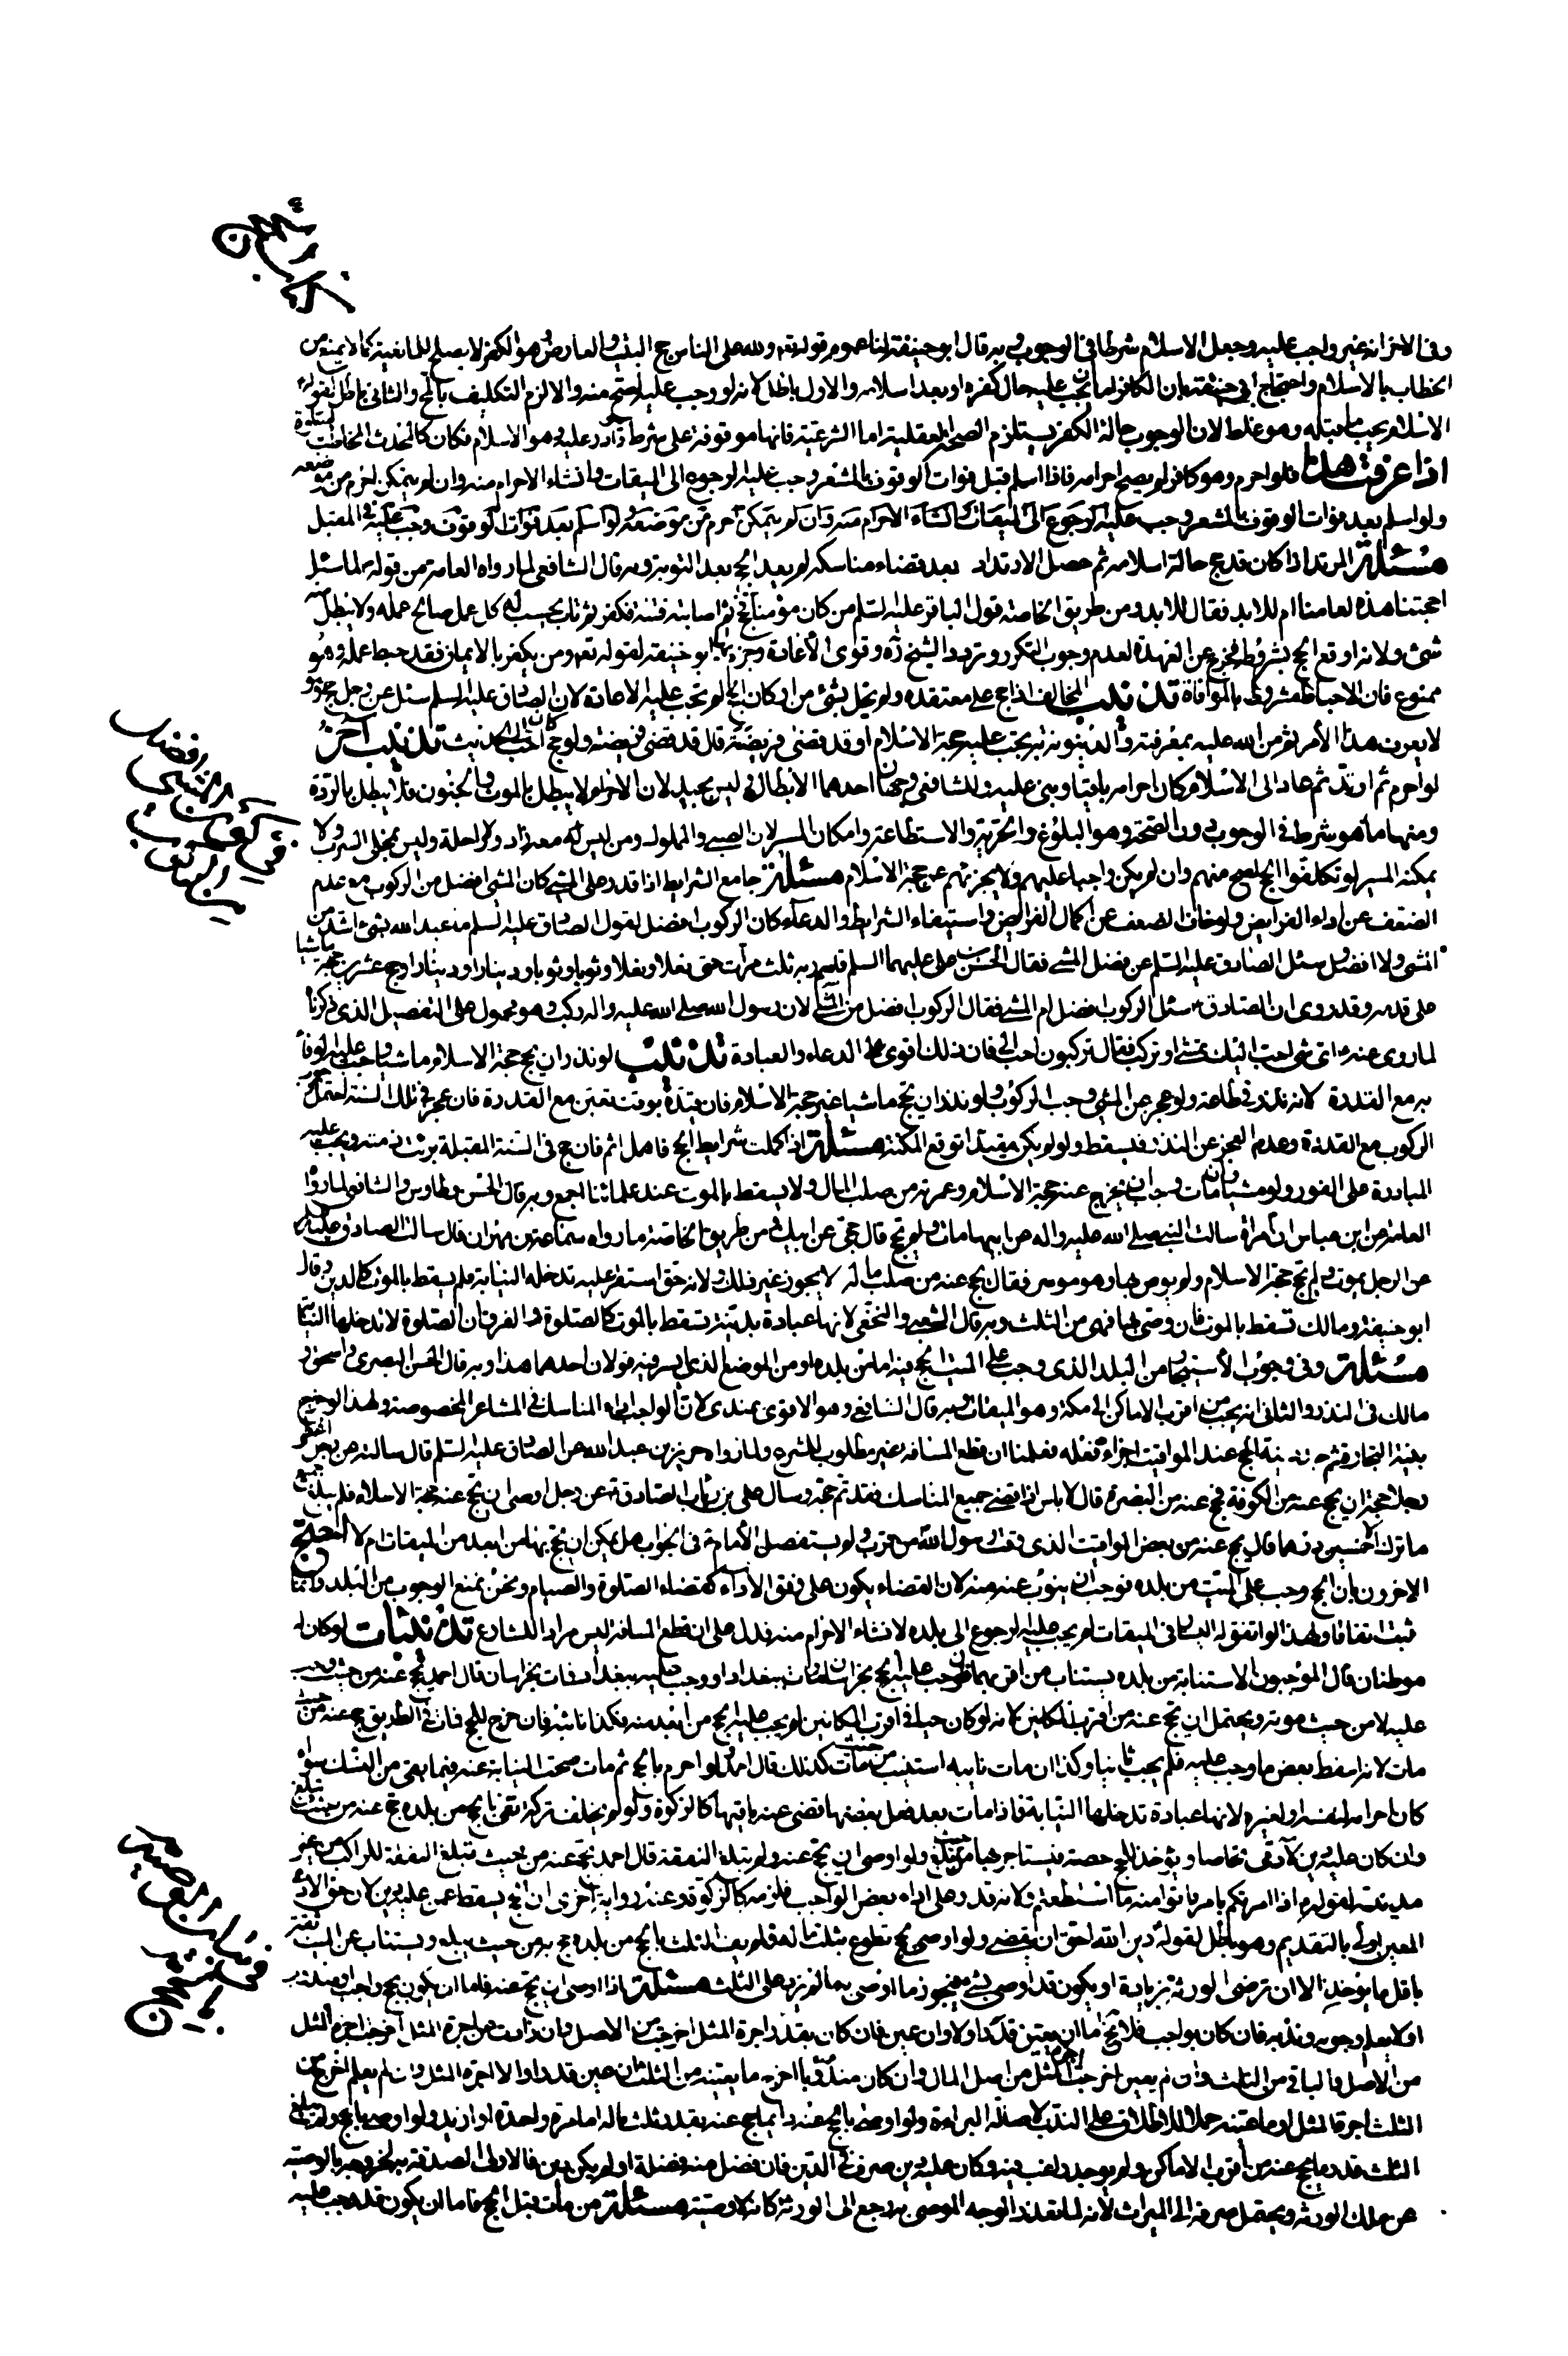 وفى الاخر انه غير واجب عليه وجعل الاسلام شرطا فى الوجوب وبه قال ابو حنيفة لنا عموم قوله تعالى ولله على الناس حج البيت والعارض وهو الكفر لا يصلح للمانعية كما لا يمنع من
الخطاب بالاسلام واحتجاج ابى حنيفة بان الكافر اما ان يجب عليه حال كفره او بعد اسلامه والاول باطل لانه لو وجب عليه لصح منه والا لزم التكليف بالمحال والثانى باطل لقوله
الاسلام يجب ما قبله وهو غلط لان الوجوب حالة الكفر يستلزم الصحة العقلية اما الشرعية فانها موقوفة على شرط قادر عليه وهو الاسلام فكان كالمحدث المخاطب بالصلوة
اذا عرفت هذا فلو احرم وهو كافر لم يصح احرامه فاذا اسلم قبل فوات الوقوف بالمشعر وجب عليه الرجوع الى الميقات وانشاء الاحرام منه وان لم يتمكن احرم من موضعه
ولو اسلم بعد فوات الوقوف بالمشعر وجب عليه الرجوع الى الميقات وانشاء الاحرام منه وان لم يتمكن احرم من موضعه ولو اسلم بعد فوات الوقوف وجب عليه فى المقبل
مسئلة المرتد اذا كان قد حج حالة اسلامه ثم حصل الارتداد بعد قضاء مناسكه لم يعد الحج بعد التوبة وبه قال الشافعى لما رواه العامة من قوله لما سئل
احجتنا هذه لعامنا ام للابد فقال للابد ومن طريق الخاصة قول الباقر عليه السلم من كان مؤمنا فحج ثم اصابته فتنة فكفر ثم تاب يحسب له كل عمل صالح عمله ولا يبطل منه
شئ ولانه اوقع الحج بشروطه فخرج عن العهدة لعدم وجوب التكرر وتردد الشيخ ره وقوى الاعادة وجزم بها ابو حنيفة لقوله تعالى ومن يكفر بالايمان فقد حبط عمله وهو
ممنوع فان الاحباط مشروط بالموافاة تذنيب المخالف اذا حج على معتقده ولم يخل بشئ من اركان الحج لم تجب عليه الاعادة لان الصادق عليه السلم سئل عن رجل حج وهو
لا يعرف هذا الامر ثم من الله عليه بمعرفته والدينونة به يجب عليه حجة الاسلام او قد قضى فريضته قال قد قضى فريضته ولو حج كان احب الى الحديث تذنيب اخر
لو احرم ثم ارتد ثم عاد الى الاسلام كان احرامه باقيا وبنى عليه وللشافعى وجهان احدهما الابطال وليس بجيد لان الاحرام لا يبطل بالموت والجنون فلا يبطل بالردة
ومنها ما هو شرط فى الوجوب دون الصحة وهو البلوغ والحرية والاستطاعة وامكان المسير لان الصبى والمملوك ومن ليس له معه زاد ولا راحلة وليس بمخلى السرب ولا
يمكنه المسير لو تكلفوا الحج لصح منهم وان لم يكن واجبا عليهم ولا يجزئهم عن حجة الاسلام مسئلة جامع الشرايط اذا قدر على المشى كان المشى افضل من الركوب مع عدم
الضعف عن اداء الفرايض ولو خاف الضعف عن اكمال الفرايض واستيفاء الشرايط والدعاء كان الركوب افضل لقول الصادق عليه السلم ما عبد الله بشئ اشد من
المشى ولا افضل وسئل الصادق عليه السلم عن فضل المشى فقال الحسن بن على عليهما السلم قاسم ربه ثلث مرات حتى نعلا ونعلا وثوبا وثوبا ودينارا ودينارا وحج عشرين حجة ماشيا
على قدميه وقد روى ان الصادق سئل الركوب افضل ام المشى فقال الركوب افضل من المشى لان رسول الله صلى الله عليه واله ركب وهو محمول على التفصيل الذى ذكرناه
لما روى عنه اى شئ احب اليك نمشى او نركب فقال تركبون احب الى فان ذلك اقوى على الدعاء والعبادة تذنيب لو نذر ان يحج حجة الاسلام ماشيا وجب عليه الوفاء
به مع القدرة لانه نذر فى طاعة ولو عجز عن المشى وجب الركوب ولو نذر ان يحج ماشيا غير حجة الاسلام فان قيده بوقت تعين مع القدرة فان عجز فى تلك السنة احتمل وجوب
الركوب مع القدرة وعدم العجز عن النذر فيسقط ولو لم يكن مقيدا توقع المكنة مسئلة اذا كملت شرايط الحج فاهمل اثم فان حج فى السنة المقبلة برئت ذمته ويجب عليه
المبادرة على الفور ولو مشيا فان مات وجب ان يخرج عنه حجة الاسلام وعمرته من صلب المال ولا يسقط بالموت عند علمائنا اجمع وبه قال الحسن وطاوس والشافعى لما رواه
العامة عن ابن عباس ان امرأة سألت النبى صلى الله عليه واله عن ابيها مات ولم يحج قال حجى عن ابيك ومن طريق الخاصة ما رواه سماعة بن مهران قال سالت الصادق عليه السلم
عن الرجل يموت ولم يحج حجة الاسلام ولم يوص بها وهو موسر فقال يحج عنه من صلب ماله لا يجوز غير ذلك ولانه حق استقر عليه تدخله النيابة فلم يسقط بالموت كالدين وقال
ابو حنيفة ومالك تسقط بالموت فان وصى بها فهى من الثلث وبه قال الشعبى والنخعى لانها عبادة بدنية تسقط بالموت كالصلوة والفرق ان الصلوة لا تدخلها النيابة
مسئلة وفى وجوب الاستيجار من البلد الذى وجب على الميت الحج فيه اما من بلده او من الموضع الذى ايسر فيه قولان احدهما هذا وبه قال الحسن البصرى واسحق و
مالك فى النذر والثانى انه يجب من اقرب الاماكن الى مكة وهو الميقات وبه قال الشافعى وهو الاقوى عندى لان الواجب اداء المناسك فى المشاعر المخصوصة ولهذا لو خرج
بنية التجارة ثم جدد نية الحج عند المواقيت اجزأه فعله فعلمنا ان قطع المسافة غير مطلوب للشرع ولما رواه حريز بن عبد الله عن الصادق عليه السلم قال سالته عن رجل اعطى
رجلا حجة ان يحج عنه من الكوفة فحج عنه من البصرة قال لا باس اذا قضى جميع المناسك فقد تم حجه وسال على بن رئاب الصادق عن رجل اوصى ان يحج عنه حجة الاسلام فلم يبلغ جميع
ما ترك الا خمسين درهما قال يحج عنه من بعض المواقيت الذى وقت رسول الله من قرب ولم يستفصل الامام فى الجواب هل يمكن ان يحج بها من ابعد من الميقات ام لا احتج
الاخرون بان الحج وجب على الميت من بلده فوجب ان ينوب عنه منه لان القضاء يكون على وفق الاداء كقضاء الصلوة والصيام ونحن نمنع الوجوب من البلد وانما
ثبت اتفاقا ولهذا لو اتفق له اليسار فى الميقات لم يجب عليه الرجوع الى بلده لانشاء الاحرام منه فدل على ان قطع المسافة ليس مرادا للشارع تذنيبات لو كان له
موطنان قال الموجبون الاستنابة من بلده يستناب من اقربهما فان وجب عليه الحج بخراسان ومات ببغداد او وجب عليه ببغداد فمات بخراسان قال احمد يحج عنه من حيث وجب
عليه لا من حيث موته ويحتمل ان يحج عنه من اقرب المكانين لانه لو كان حيا فى اقرب المكانين لم يجب عليه الحج من ابعد منه فكذا نائبه فان خرج للحج فمات فى الطريق حج عنه من حيث
مات لانه اسقط بعض ما وجب عليه فلم يجب ثانيا وكذا ان مات نايبه استنيب من حيث مات كذلك قال احمد ولو احرم بالحج ثم مات صحت النيابة عنه فيما بقى من النسك سواء
كان احرامه لنفسه او لغيره لانها عبادة تدخلها النيابة فاذا مات بعد فعل بعضها قضى عنه باقيها كالزكوة ولو لم يخلف تركة تفى بالحج من بلده حج عنه من حيث تبلغ
وان كان عليه دين لآدمى تحاصا ويؤخذ للحج حصته فيستاجر بها من حيث تبلغ ولو اوصى ان يحج عنه ولم تبلغ النفقة قال احمد يحج عنه من حيث تبلغ النفقة للراكب من غير
مدينته لقوله اذا امرتكم بامر فأتوا منه ما استطعتم ولانه قدر على اداء بعض الواجب فلزمه كالزكوة وعنه رواية اخرى ان الحج يسقط عمن عليه دين لان حق الادمى
المعين اولى بالتقديم وهو باطل لقوله دين الله احق ان يقضى ولو اوصى بحج تطوع بثلث ماله فلم يف الثلث بالحج من بلده حج به من حيث يبلغ ويستناب عن الميت ثقة
باقل ما يوخذ الا ان ترضى الورثة بزيادة او يكون قد اوصى بشئ فيجوز ما اوصى به ما لم يزد على الثلث مسئلة اذا اوصى ان يحج عنه فاما ان يكون بحج واجب او مندوب
او لا يعلم وجوبه وندبه فان كان بواجب فلا يخ اما ان يعين قدرا او لا وان عين فان كان بقدر اجرة المثل اخرجت من الاصل وان زادت عن اجرة المثل اخرجت اجرة المثل
من الاصل والباقى من الثلث وان لم يعين اخرجت اجرة المثل من اصل المال وان كان مندوبا اخرج ما يعينه من الثلث ان عين قدرا والا اجرة المثل وان لم يعلم اخرج من
الثلث اجرة المثل او ما عينه حملا للاطلاق على الندب لاصالة البراءة ولو اوصى بالحج عنه دائما حج عنه بقدر ثلث ماله اما مرة واحدة او ازيد ولو اوصى بالحج ولم يبلغ
الثلث قدر ما يحج عنه من اقرب الاماكن ولم يوجد راغب فيه وكان عليه دين صرف فى الدين فان فضل منه فضلة او لم يكن دين فالاولى الصدقة به لخروجه بالوصية
عن ملك الورثة ويحتمل صرفه الى الميراث لانه لما تعذر الوجه الموصى به رجع الى الورثة كانه لا وصية مسئلة من مات قبل الحج فاما ان يكون قد وجب عليه